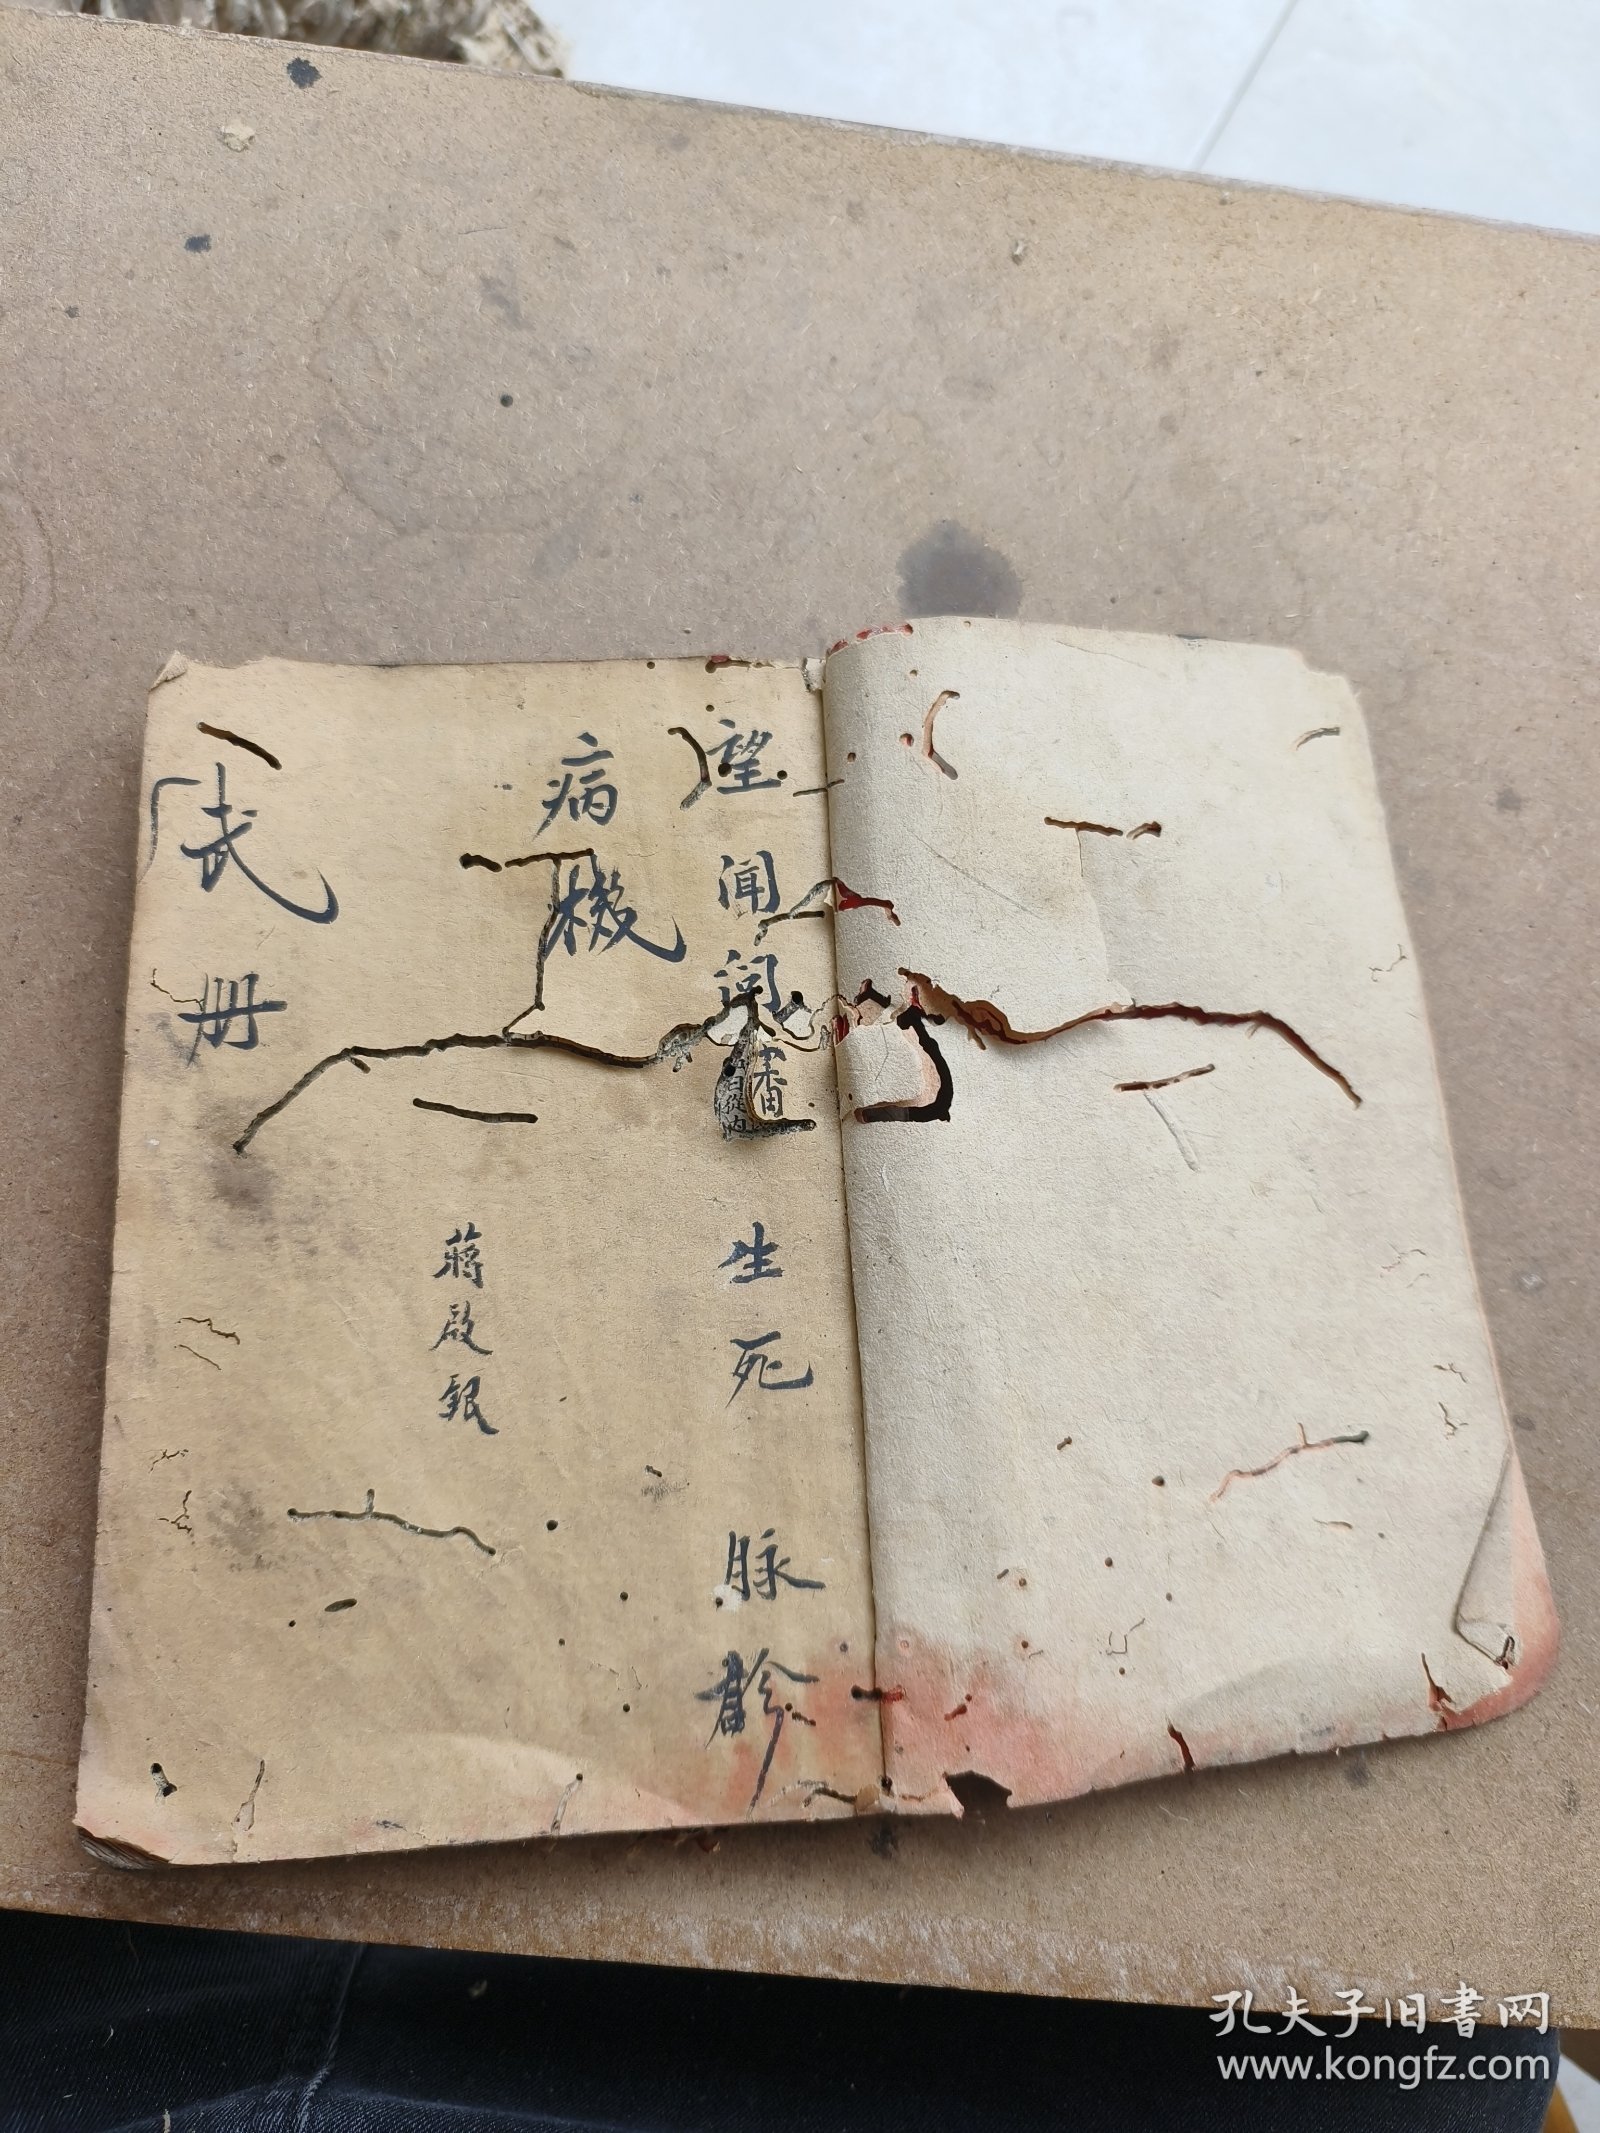 望聞問
生死
脉
病機
蔣啟銀
武冊
孔夫子旧书网
www.kongfz.com